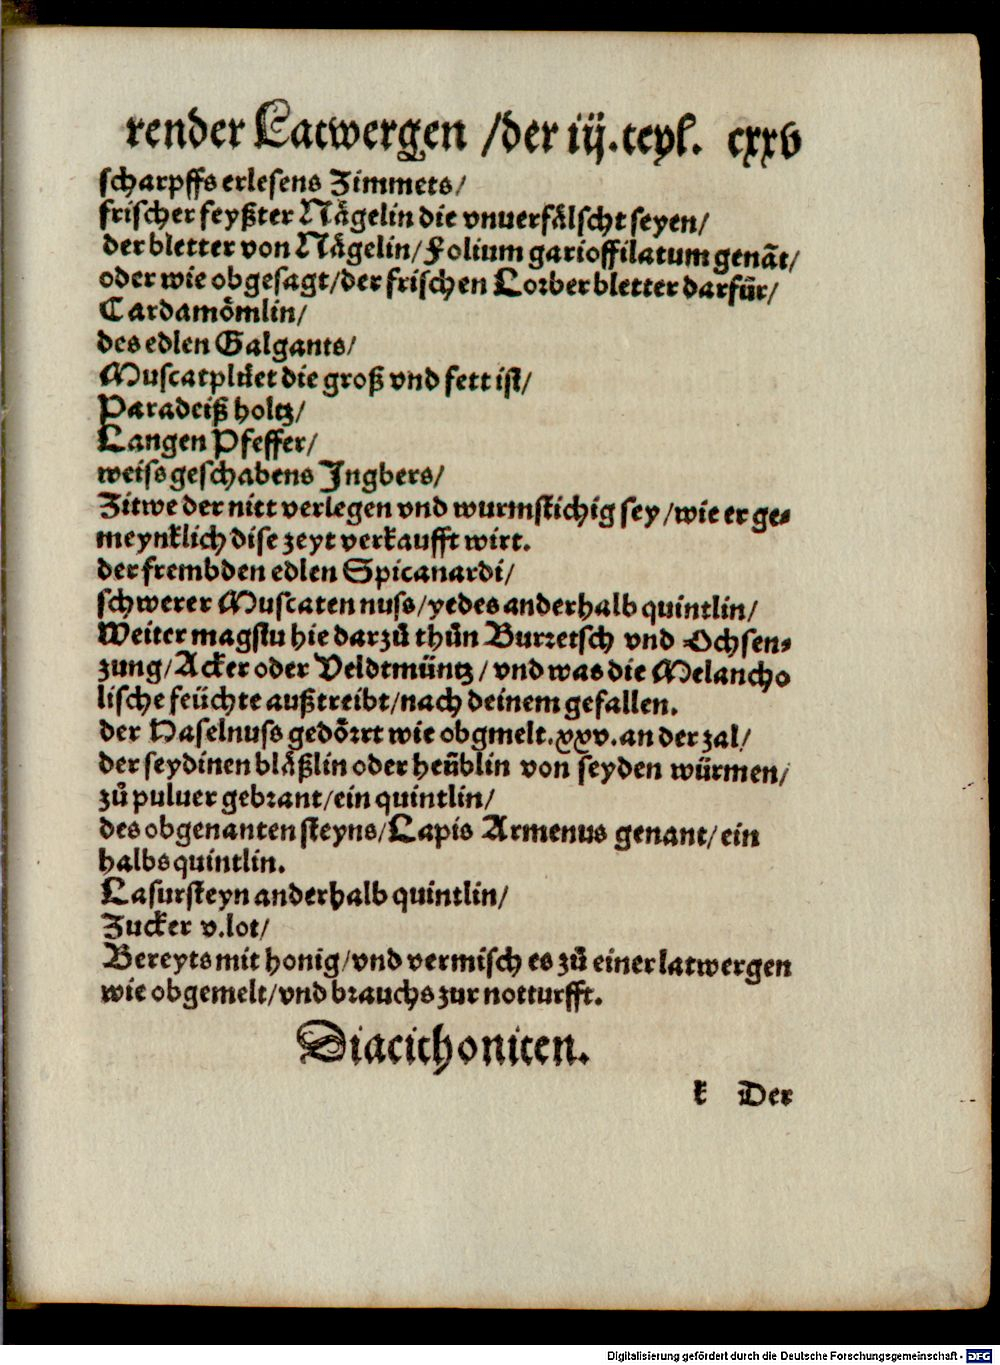 render Latwergen /der iij.teyl. cxxv
scharpffs erlesens Zimmets/
frischer feyßter Nägelin die vnuerfälscht seyen/
der bletter von Nägelin/Folium garioffilatum genāt/
oder wie obgesagt/der frischen Lorber bletter darfür/
Cardamömlin/
des edlen Galgants/
Muscatplüet die groß vnd fett ist/
Paradeiß holtz/
Langen Pfeffer/
weiss geschabens Jngbers/
Zitwe der nitt verlegen vnd wurmstichig sey/wie er ge⸗
meynklich dise zeyt verkaufft wirt.
der frembden edlen Spicanardi/
schwerer Muscaten nuss/yedes anderhalb quintlin/
Weiter magstu hie darzů thůn Burretsch vnd Ochsen⸗
zung/Acker oder Veldtmüntz/vnd was die Melancho
lische feüchte außtreibt/nach deinem gefallen.
der Haselnuss gedörrt wie obgmelt.xxv.an der zal/
der seydinen bläßlin oder heüblin von seyden würmen/
zů puluer gebrant/ein quintlin/
des obgenanten steyns/Lapis Armenus genant/ein
halbs quintlin.
Lasursteyn anderhalb quintlin/
Zucker v.lot/
Bereyts mit honig/vnd vermisch es zů einer latwergen
wie obgemelt/vnd brauchs zur notturfft.
Diacithoniten.
k Der
Digitalisierung gefördert durch die Deutsche Forschungsgemeinschaft - DFG